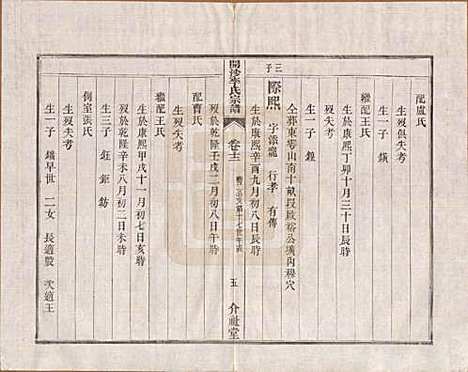 配盧氏
生歿俱失考
生一子 鍈
繼配王氏
生於康熙丁卯十月三十日辰時
歿失考
生一子 鏓
仝葬東零山南十畝段啟裕公塋內穆穴
三子
際熙 字添龍 行孝 有傳
生於康熙辛酉九月初八日辰時
歿於乾隆壬戌二月初八日午時
開沙李氏宗譜
卷十二
五 介祉堂
配曹氏
生失考
繼配王氏
生於康熙甲戌十一月初七日亥時
歿於乾隆辛未八月初二日未時
生三子 鈺 鉅 鈁
側室張氏
生歿失考
生一子 鑑早世 二女 長適殷 次適王